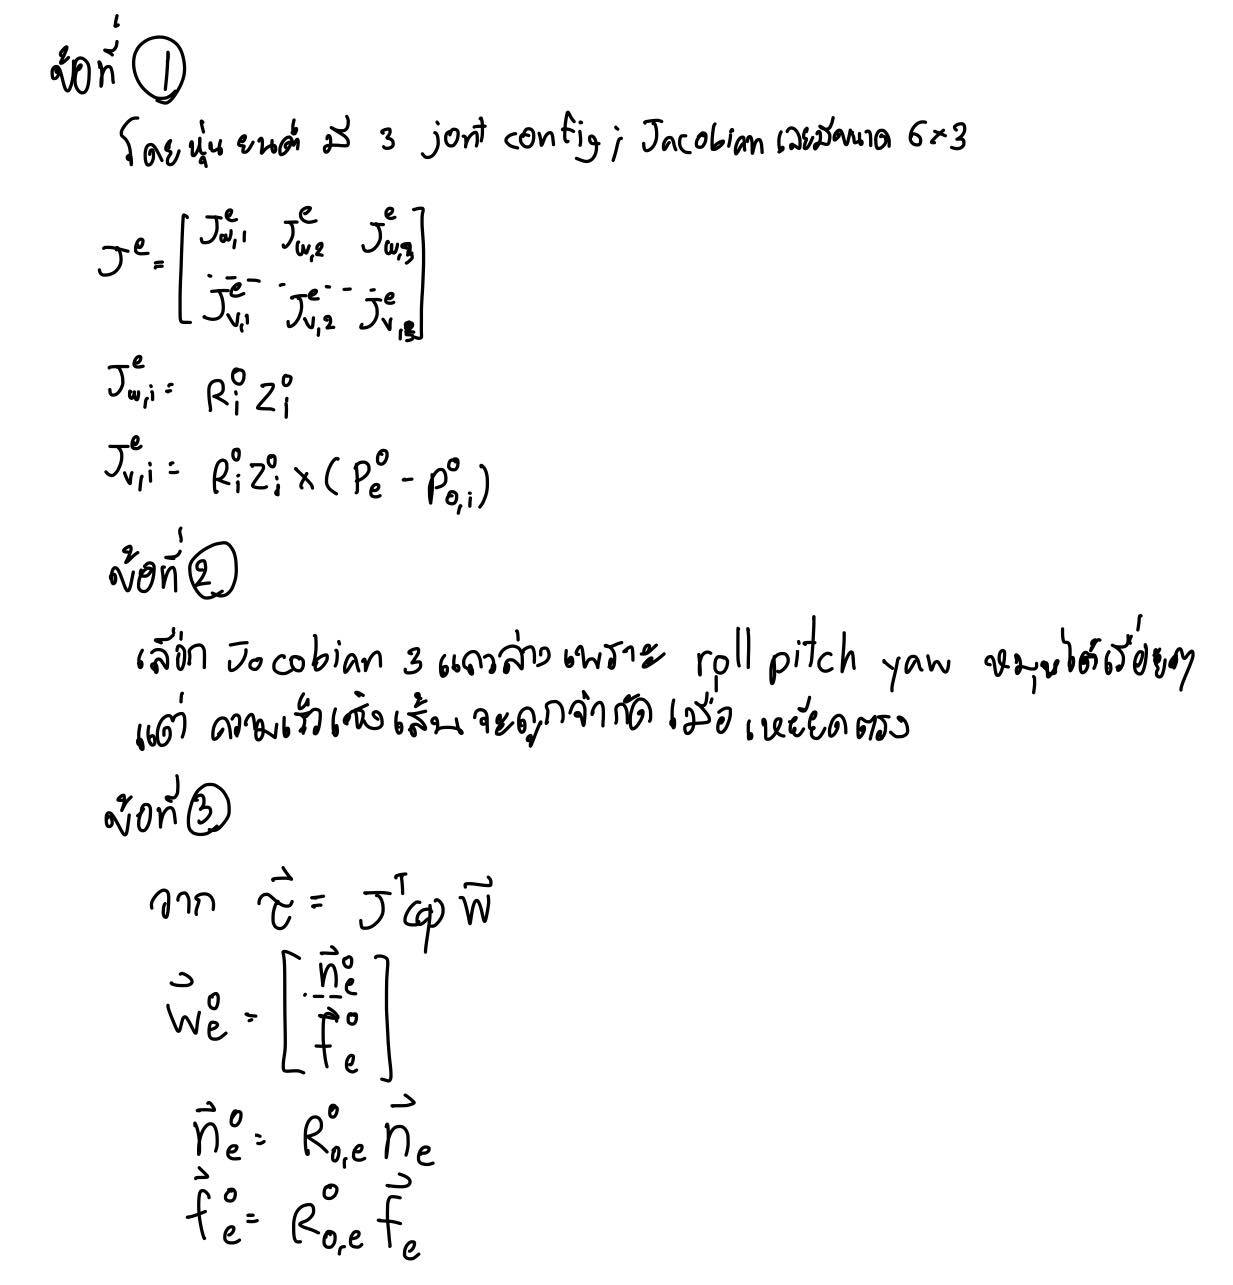 ข้อที่ 1
โดยหุ่นยนต์ มี 3 joint config ; Jacobian เลยมีขนาด 6×3
J^e = [ J^e_{w,1} J^e_{w,2} J^e_{w,3}
J^e_{v,1} J^e_{v,2} J^e_{v,3} ]
J^e_{w,i} = R^0_i Z^0_i
J^e_{v,i} = R^0_i Z^0_i × ( P^0_e - P^0_{0,i} )
ข้อที่ 2
เลือก Jacobian 3 แถวล่าง เพราะ roll pitch yaw หมุนได้เรื่อยๆ
แต่ ความเร็วเชิงเส้น จะถูกจำกัด เมื่อ เหยียดตรง
ข้อที่ 3
จาก τ⃗ = J^T(q) w⃗
w⃗^0_e = [ n⃗^0_e
f⃗^0_e ]
n⃗^0_e = R^0_{0,e} n⃗_e
f⃗^0_e = R^0_{0,e} f⃗_e